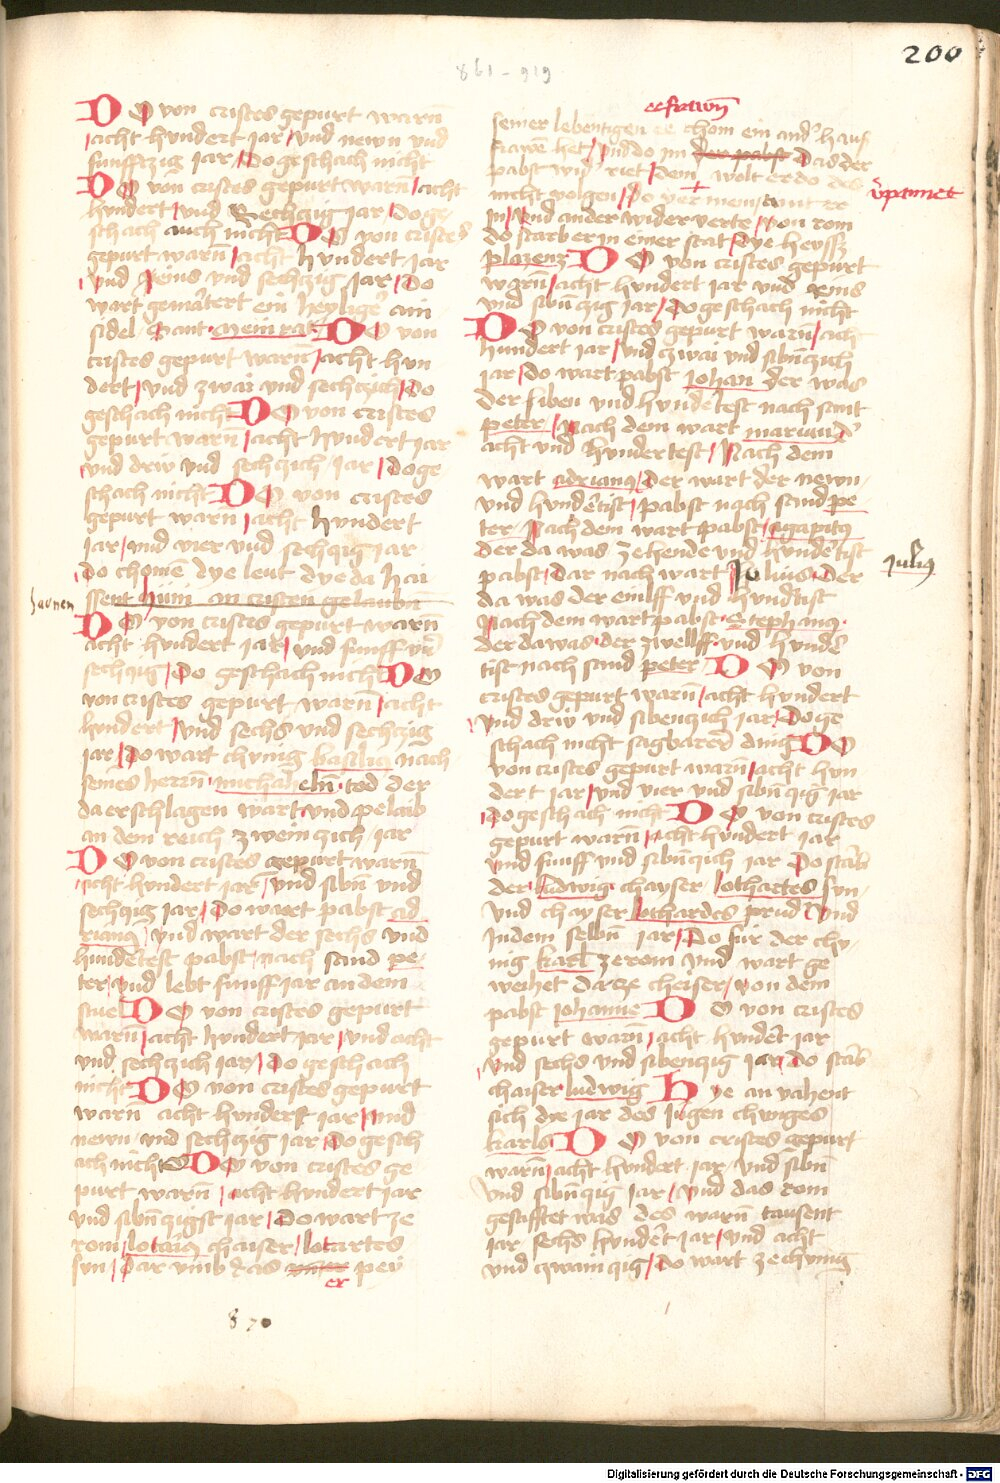 200
861 - 919
DO von cristes gepurt warn̄
acht hundert jar vnd newn vnd
funffczig jar Do geschach nicht
DO von cristes gepurt warn̄ acht
hundert vnd Sechczig jar Do ge
schach auch nicht DO von cristes
gepurt warn̄ acht hundert jar
vnd Eins vnd sechczig jar Do
wart gemartert ein heyliger ain
sidel Sant meinrat DO von
cristes gepurt warn̄ acht hun
dert vnd zwai vnd sechczich Do
geschach nicht DO von cristes
gepurt warn̄ acht hundert jar
vnd driv vnd sechczich jar Do ge
schach nicht DO von cristes
gepurt warn̄ acht hundert
jar vnd vier vnd sechczig jar
Do chomē dye leut dye da hai
ssent huni an cristen gelaubn̄
haunen
DO von cristes gepurt warn̄
acht hundert jar vnd funff vn̄
sechczig Do geschach nicht DO
von cristes gepurt warn̄ acht
hundert vnd sechs vnd sechczig
jar Do wart chunig basilius nach
seines herrn̄ michaheln̄ tod der
da erschlagen wart vnd pelaib
an dem reich zweinczich jar
DO von cristes gepurt warn̄
acht hundert jar vnd sibn̄ vnd
sechczig jar Do wart pabst ad
rianus vnd wart der sechs vnd
hundertest pabst nach sand pe
ter vnd lebt funff jar an dem
stuel DO von cristes gepurt
warn̄ acht hundert jar vnd acht
vnd sechczich jar Do geschach
nicht DO von cristes gepurt
warn̄ acht hundert jar vnd
newn vnd sechczig jar Do gesch
ach nichts DO von cristes ge
purt warn̄ acht hundert jar
vnd sibn̄czigst jar Do wart ze
rom lotarius chaiser lotartes
sun Dar vmb das vnter pey
er
870
eefrawn̄
seiner lebentigen ee chom ein and' hauf
frawē het vnd do im der pabst Das der
pabst wid' riet Dem wolt er do des
v̓pannet
nicht volgen Do
jn vnd ander wider verte von rom
do starb er in einer stat dye heysst
plazenz DO von cristes gepurt
warn̄ acht hundert jar vnd eins
vnd sibn̄czig jar Do geschach nicht
DO von cristes gepurt warn̄ acht
hundert jar vnd czwai vnd sibn̄czich
jar Do wart pabst johan der was
der siben vnd hundertest nach sant
peter Nach dem wart marinus d'
acht vnd hundertest Nach dem
wart adrianus Der wart der newn
vnd hundertist pabst nach sand pe
ter Nach dem wart pabst agapitus
der da was zehende vnd hundertist
pabst Dar nach wart Julius der
Julius
da was der einlff vnd hundtist
Nach dem wart pabst Stephanus
der da was der zwelff vnd hunde
tist nach sand peter DO von
cristes gepurt warn̄ acht hundert
vnd driv vnd sibenczich jar Do ge
schach nicht sagbarer ding DO
von cristes gepurt warn̄ acht hun
dert jar vnd vier vnd sibn̄czig jar
Do geschach nicht DO von cristes
gepurt warn̄ acht hundert jar
vnd funff vnd sibn̄czich jar Do starb
der ludwig chayser lothartes sun
vnd chayser lothardes prud' Vnd
in dem selbn̄ jar Do fur der chu
nig karl ze rom vnd wart ge
weihet da ze cheiser von dem
pabst johanne DO von cristes
gepurt warn̄ acht hundert jar
vnd sechs vnd sibenczig jar Do starb
chaiser ludwig Hye an vahent
sich dye jar des jungen chuniges
karls DO von cristes gepurt
warn̄ acht hundert jar vnd sibn̄
vnd sibn̄czig jar vnd das rom
gestifftet was des warn̄ tausent
jar sechs hundert jar vnd acht
vnd czwainczig Do wart ze chunig
Digitalisierung gefördert durch die Deutsche Forschungsgemeinschaft - DFG